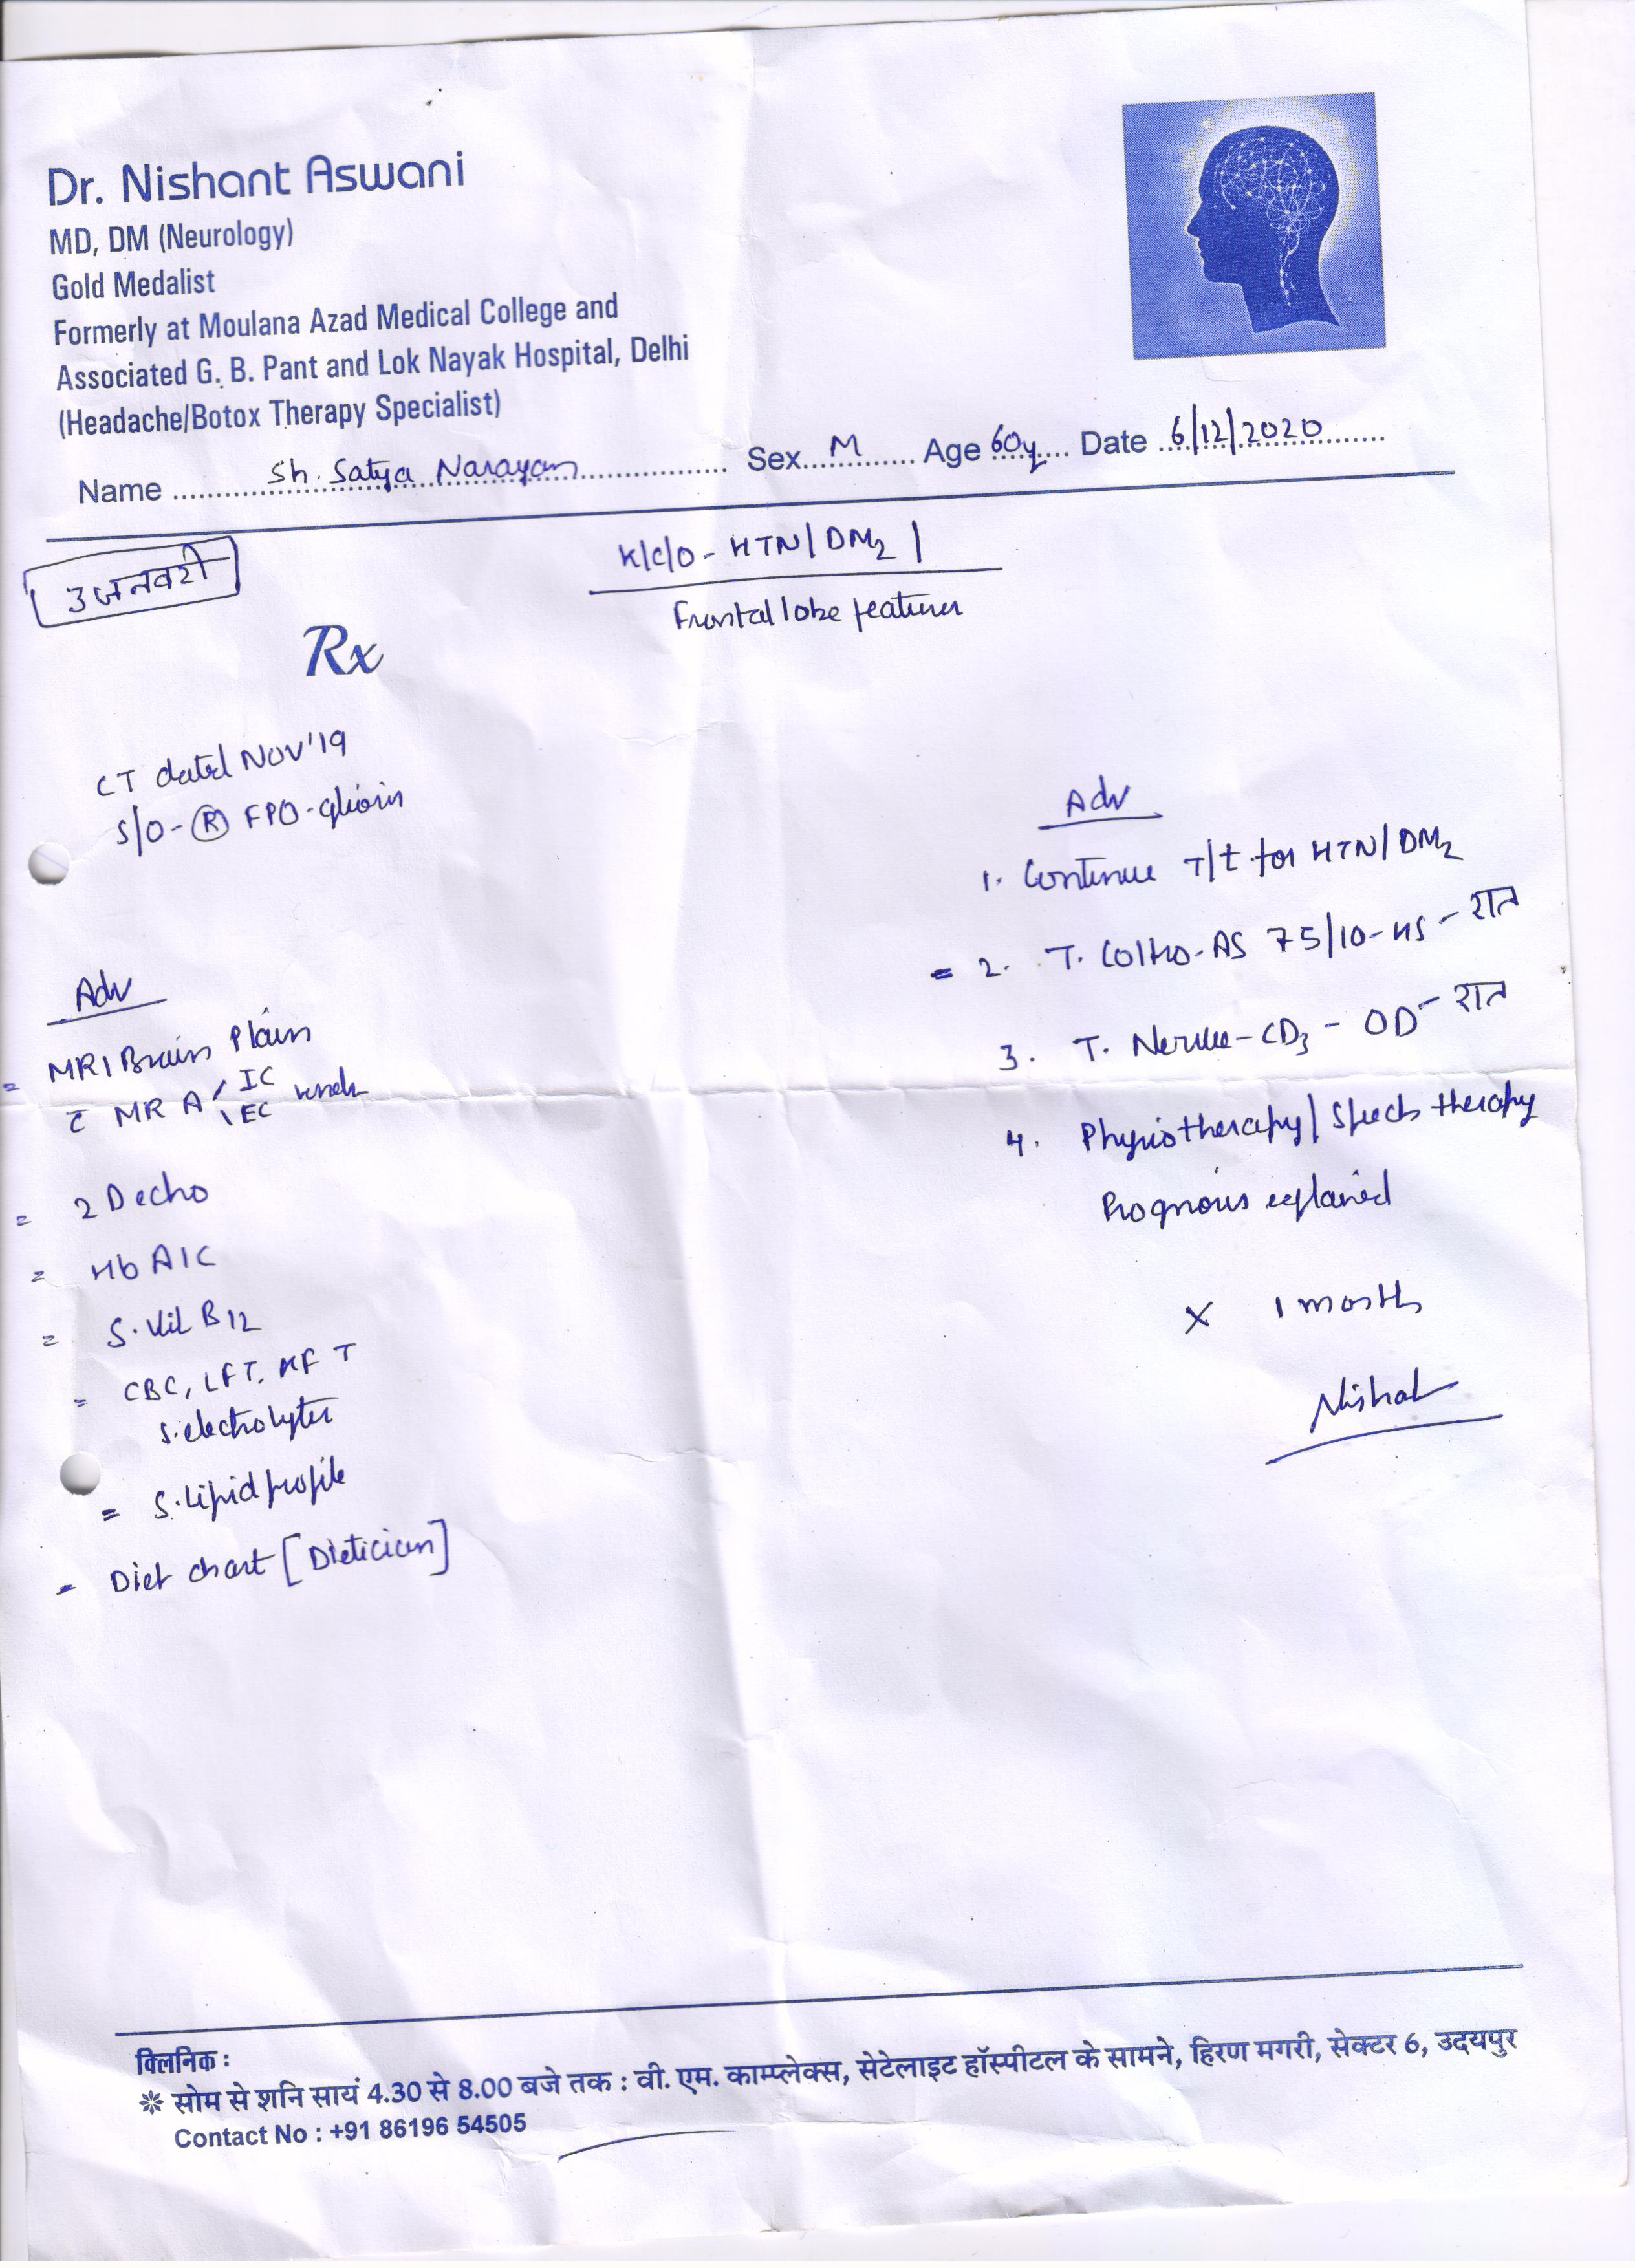 Dr. Nishant Aswani
MD, DM (Neurology)
Gold Medalist
Formerly at Moulana Azad Medical College and
Associated G. B. Pant and Lok Nayak Hospital, Delhi
(Headache/Botox Therapy Specialist)
Name Sh. Satya Narayan Sex M Age 60y Date 6/12/2020
3 जनवरी
K/c/o - HTN/DM2 /
Frontal lobe features
Rx
CT dated Nov'19
S/O - (R) FPO-gliosis
Adv
= MRI Brain Plain
c̄ MRA IC EC vessels
= 2D echo
= HbA1C
= S. Vit B12
= CBC, LFT, KFT
S. electrolytes
= S. Lipid profile
- Diet chart [Dietician]
Adv
1. Continue T/t for HTN/DM2
= 2. T. -AS 75/10 - HS - रात
3. T. - CD3 - OD - रात
4. Physiotherapy/Speech therapy
Prognosis explained
x 1 month
Nishant
क्लिनिक :
❊ सोम से शनि सायं 4.30 से 8.00 बजे तक : वी. एम. काम्प्लेक्स, सेटेलाइट हॉस्पीटल के सामने, हिरण मगरी, सेक्टर 6, उदयपुर
Contact No : +91 86196 54505